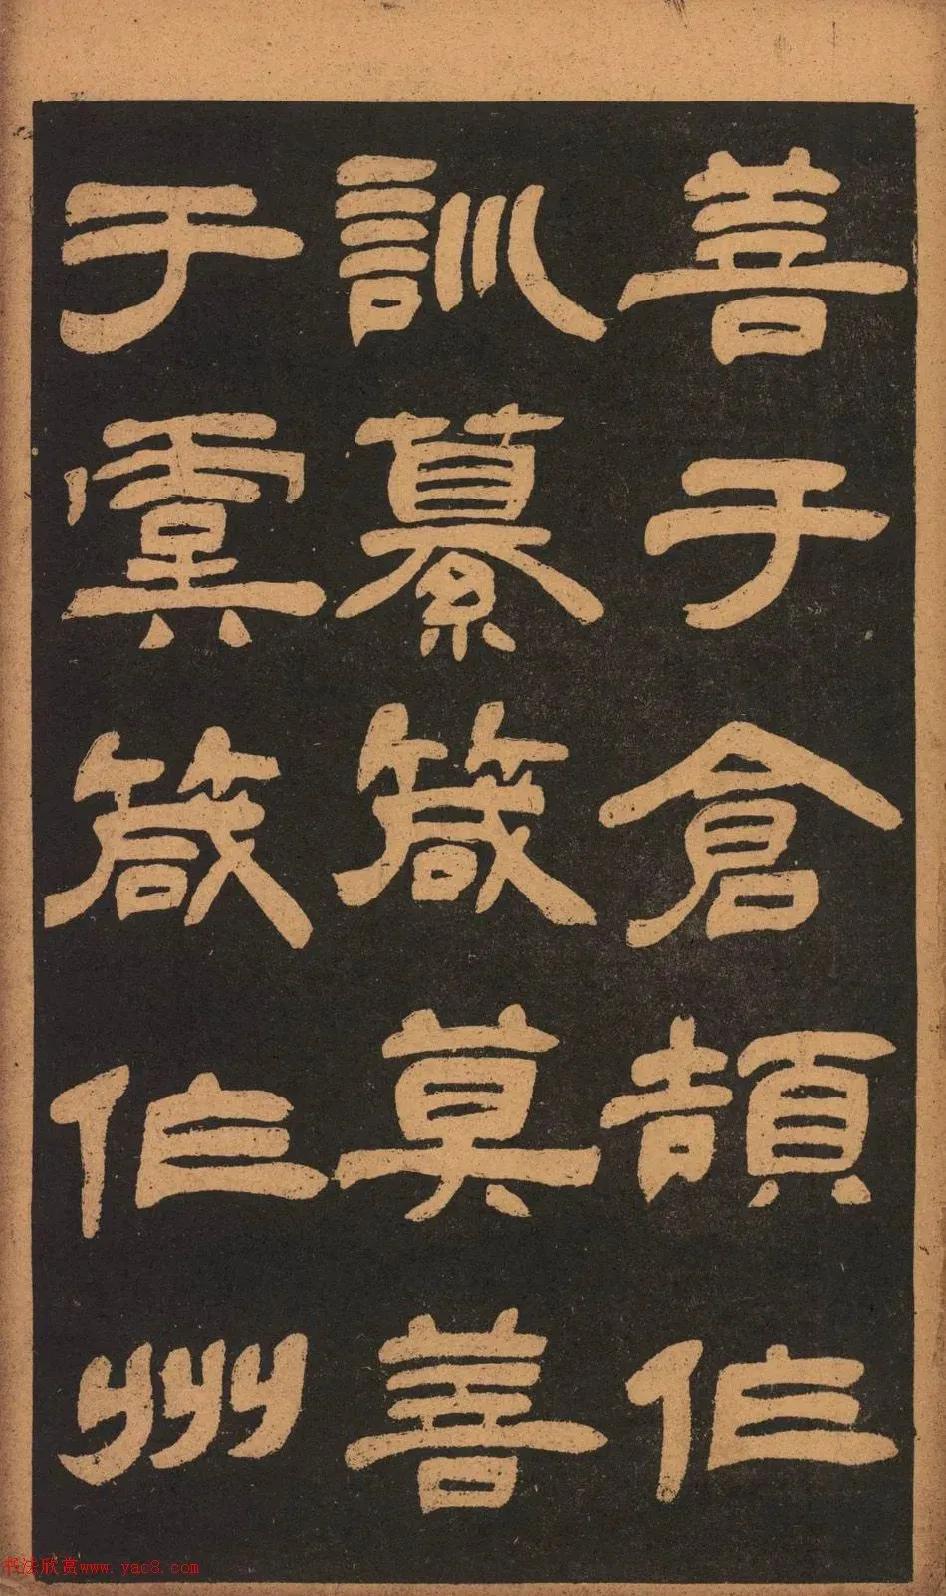 善于倉頡作
訓纂箴莫善
于虞箴作州
书法欣赏www.yac8.com